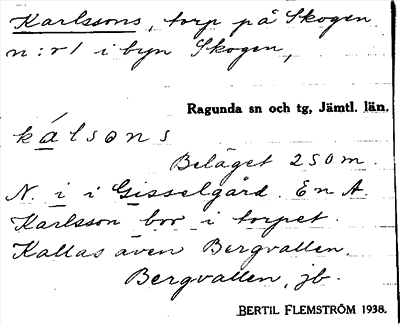 Karlssons, torp på Skogen
n:r 1 i byn Skogen,
Ragunda sn och tg, Jämtl. län.
kálsons
Beläget 250 m.
N. i i Gisselgård. En A.
Karlsson bor i torpet.
Kallas även Bergvallen.
Bergvallen, jb.
BERTIL FLEMSTRÖM 1938.